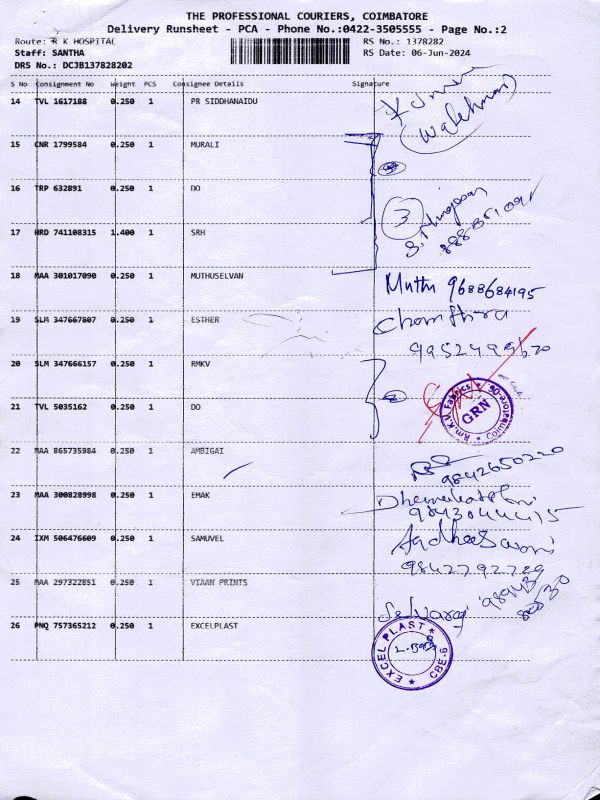 THE PROFESSIONAL COURIERS, COIMBATORE
Delivery Runsheet - PCA - Phone No.:0422-3505555 - Page No.:2
Route: R K HOSPITAL RS No.: 1378282
Staff: SANTHA RS Date: 06-Jun-2024
DRS No.: DCJB137828202
S No Consignment No Weight PCS Consignee Details Signature
14 TVL 1617188 0.250 1 PR SIDDHANAIDU
Kumar
15 CNR 1799584 0.250 1 MURALI
16 TRP 632891 0.250 1 DO
3
17 HRD 741108315 1.400 1 SRH
18 MAA 301017090 0.250 1 MUTHUSELVAN
Muthu 9688684195
19 SLM 347667807 0.250 1 ESTHER
20 SLM 347666157 0.250 1 RMKV
Rm.K.V. Fabrics
GRN
21 TVL 5035162 0.250 1 DO
22 MAA 865735984 0.250 1 AMBIGAI
9842650220
23 MAA 300828998 0.250 1 EMAK
9843044415
24 IXM 506476609 0.250 1 SAMUVEL
9842792789
25 MAA 297322851 0.250 1 VIAAN PRINTS
Selvaraj
26 PNQ 757365212 0.250 1 EXCELPLAST
EXCEL PLAST
CBE-6